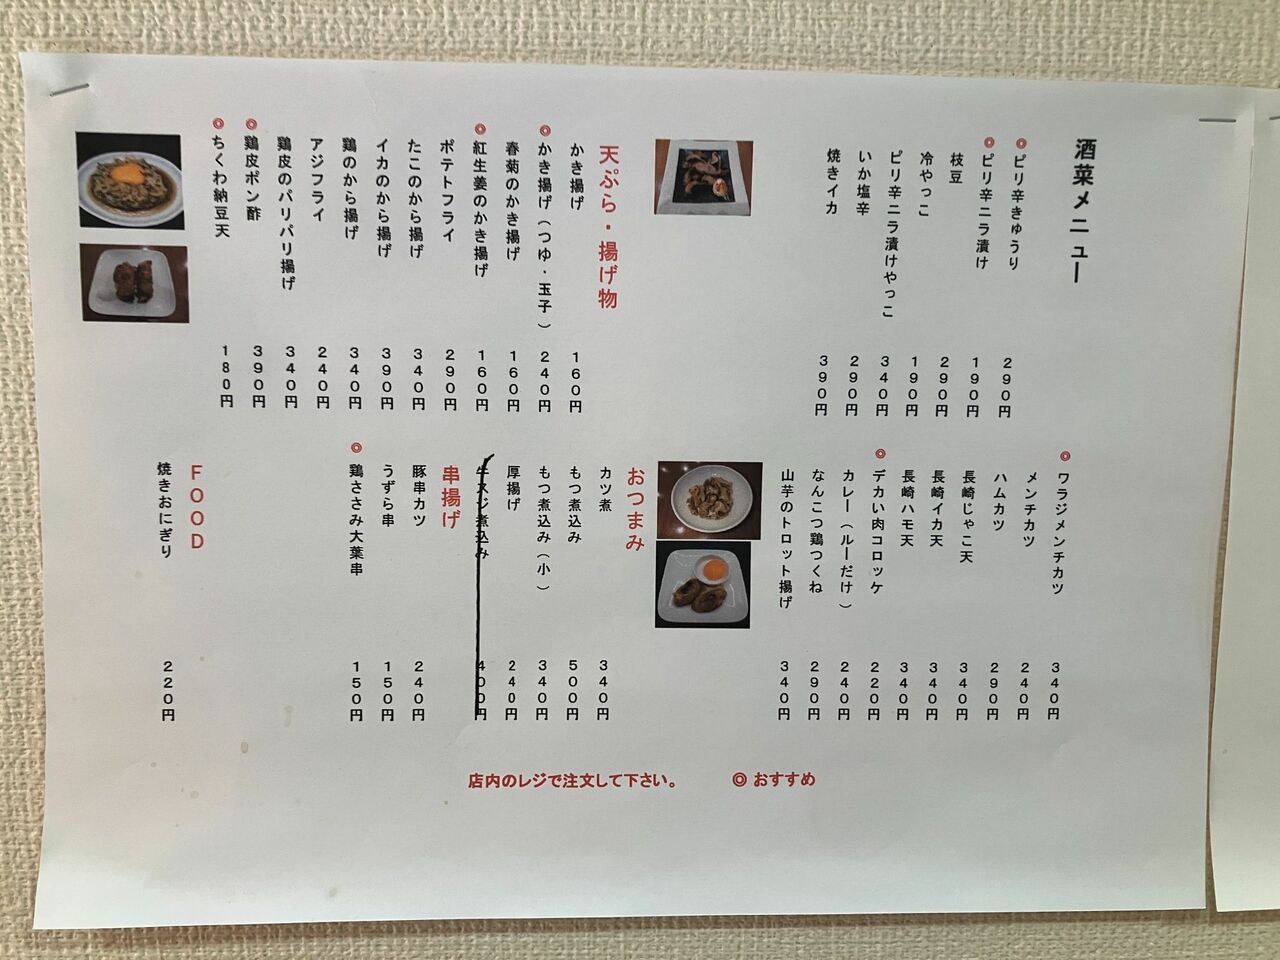 酒菜メニュー
◎ピリ辛きゅうり 290円
◎ピリ辛ニラ漬け 190円
枝豆 290円
冷やっこ 190円
ピリ辛ニラ漬けやっこ 340円
いか塩辛 290円
焼きイカ 390円
◎ワラジメンチカツ 340円
メンチカツ 240円
ハムカツ 290円
長崎じゃこ天 340円
長崎イカ天 340円
長崎ハモ天 340円
◎デカい肉コロッケ 220円
カレー(ルーだけ) 240円
なんこつ鶏つくね 290円
山芋のトロット揚げ 340円
天ぷら・揚げ物
かき揚げ 160円
◎かき揚げ(つゆ・玉子) 240円
春菊のかき揚げ 160円
◎紅生姜のかき揚げ 160円
ポテトフライ 290円
たこのから揚げ 340円
イカのから揚げ 390円
鶏のから揚げ 340円
アジフライ 240円
鶏皮のパリパリ揚げ 340円
◎鶏皮ポン酢 390円
◎ちくわ納豆天 180円
おつまみ
カツ煮 340円
もつ煮込み 500円
もつ煮込み(小) 340円
厚揚げ 240円
牛スジ煮込み 400円
串揚げ
豚串カツ 240円
うずら串 150円
◎鶏ささみ大葉串 150円
FOOD
焼きおにぎり 220円
店内のレジで注文して下さい。 ◎おすすめ